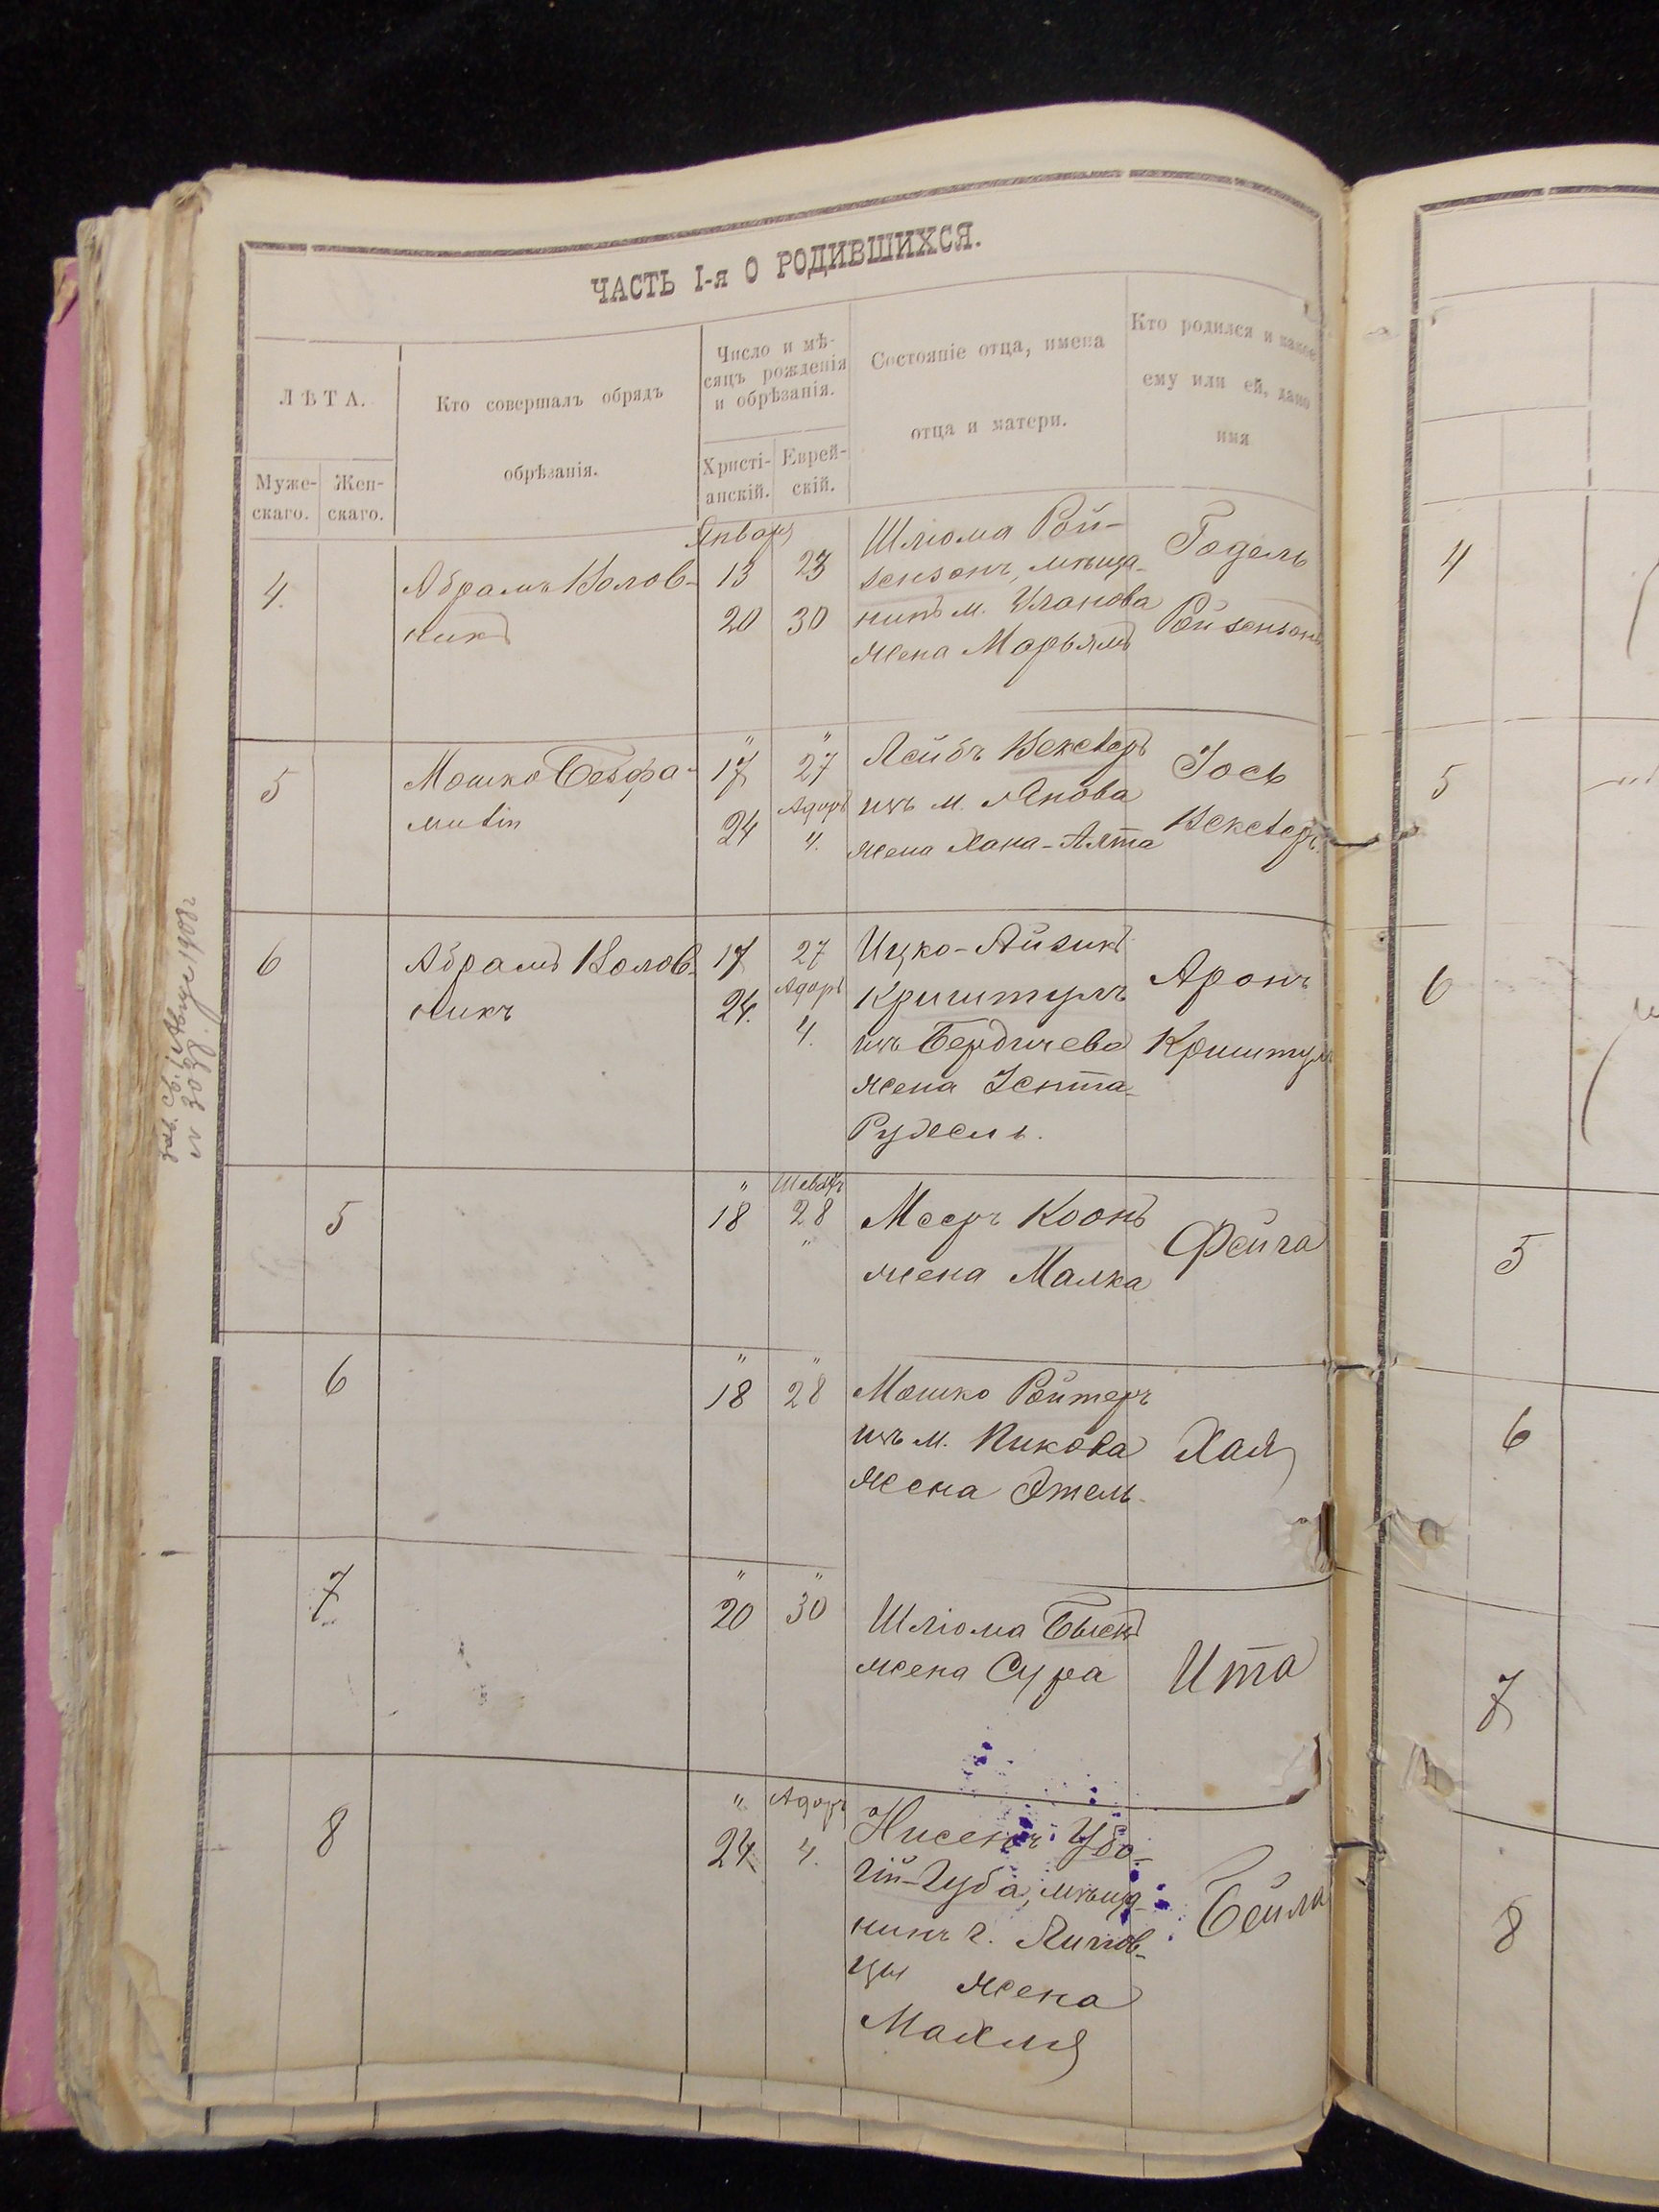 ЧАСТЬ I-я О РОДИВШИХСЯ.
ЛѢТА.
Муже-
скаго.
Жен-
скаго.
Кто совершалъ обрядъ
обрѣзанія.
Число и мѣ-
сяцъ рожденія
и обрѣзанія.
Христі-
анскій.
Еврей-
скій.
Состояніе отца, имена
отца и матери.
Кто родился и какое
ему или ей, дано
имя
Январь
4.
Абрамъ Колов-
никъ
13
20
23
30
Шліома Рой-
зензонъ, мѣща-
нинъ м. Уланова
жена Марьямъ
Годель
Ройзензонъ
4
5
Мошко Безфа-
"
17
24
"
27
Адаръ
4.
Лейбъ Векслеръ
изъ м. Янова
жена Хана-Алта
Іось
Векслеръ
5
6
Абрамъ Колов-
никъ
17
24.
27
Адаръ
4.
Ицко-Айзикъ
Криштулъ
изъ Бердичева
жена Іента-
Рухель.
Аронъ
Криштулъ
6
№ 3038.
5
"
18
Шеватъ
28
"
Мееръ Коонъ
жена Малка
Фейга
5
6
"
18
"
28
Мошко Ройтеръ
изъ м. Пикова
жена Этель.
Хая
6
7
"
20
"
30
Шліома Быкъ
жена Сура
Ита
7
8
"
24
Адаръ
4.
Нисенъ Убо-
гій-Губа, мѣща-
нинъ г.
цы жена
Махля
Бейла
8